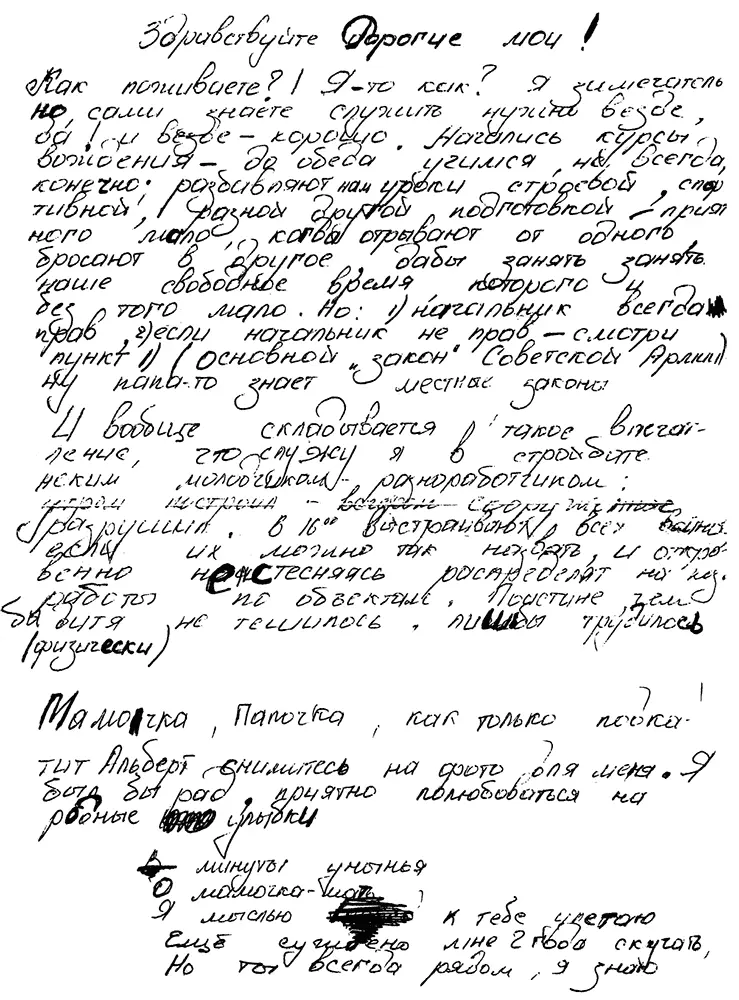 Здравствуйте Дорогие мои!
Как поживаете?! Я-то как? Я зимечатель
но, сами знаете служить нужно везде,
да! и везде – хорошо. Начались курсы
вождения – до обеда учимся, не всегда,
конечно: разбавляют нам уроки строевой, спор
тивной, разной другой подготовкой – прият
ного мало, когда отрывают от одного,
бросают в другое, дабы занять занять
наше свободное время, которого и
без того мало. Но: 1) начальник всегда
прав, 2) если начальник не прав – смотри
пункт 1) (основной „закон" Советской Армии)
ну папа-то знает местные законы
И вообще складывается такое впечат-
ление, что служу я в стройбате
неким молодчиком-разноработчиком:
утром построил – вечером
разрушил. В 16⁰⁰ выстраивают всех
если их можно так назвать, и откро-
венно не стесняясь распределят на
работы по объектам. Поистине, чем
бы дитя не тешилось, лишь бы трудилось
(физически)
Мамочка, Папочка, как только подка-
тит Альберт снимитесь на фото для меня. Я
был бы рад, приятно полюбоваться на
родные улыбки
В минуты унынья
О мамочка-мать
Я мыслью к тебе улетаю
Ещё суждено мне 2 года скучать,
Но ты всегда рядом, я знаю